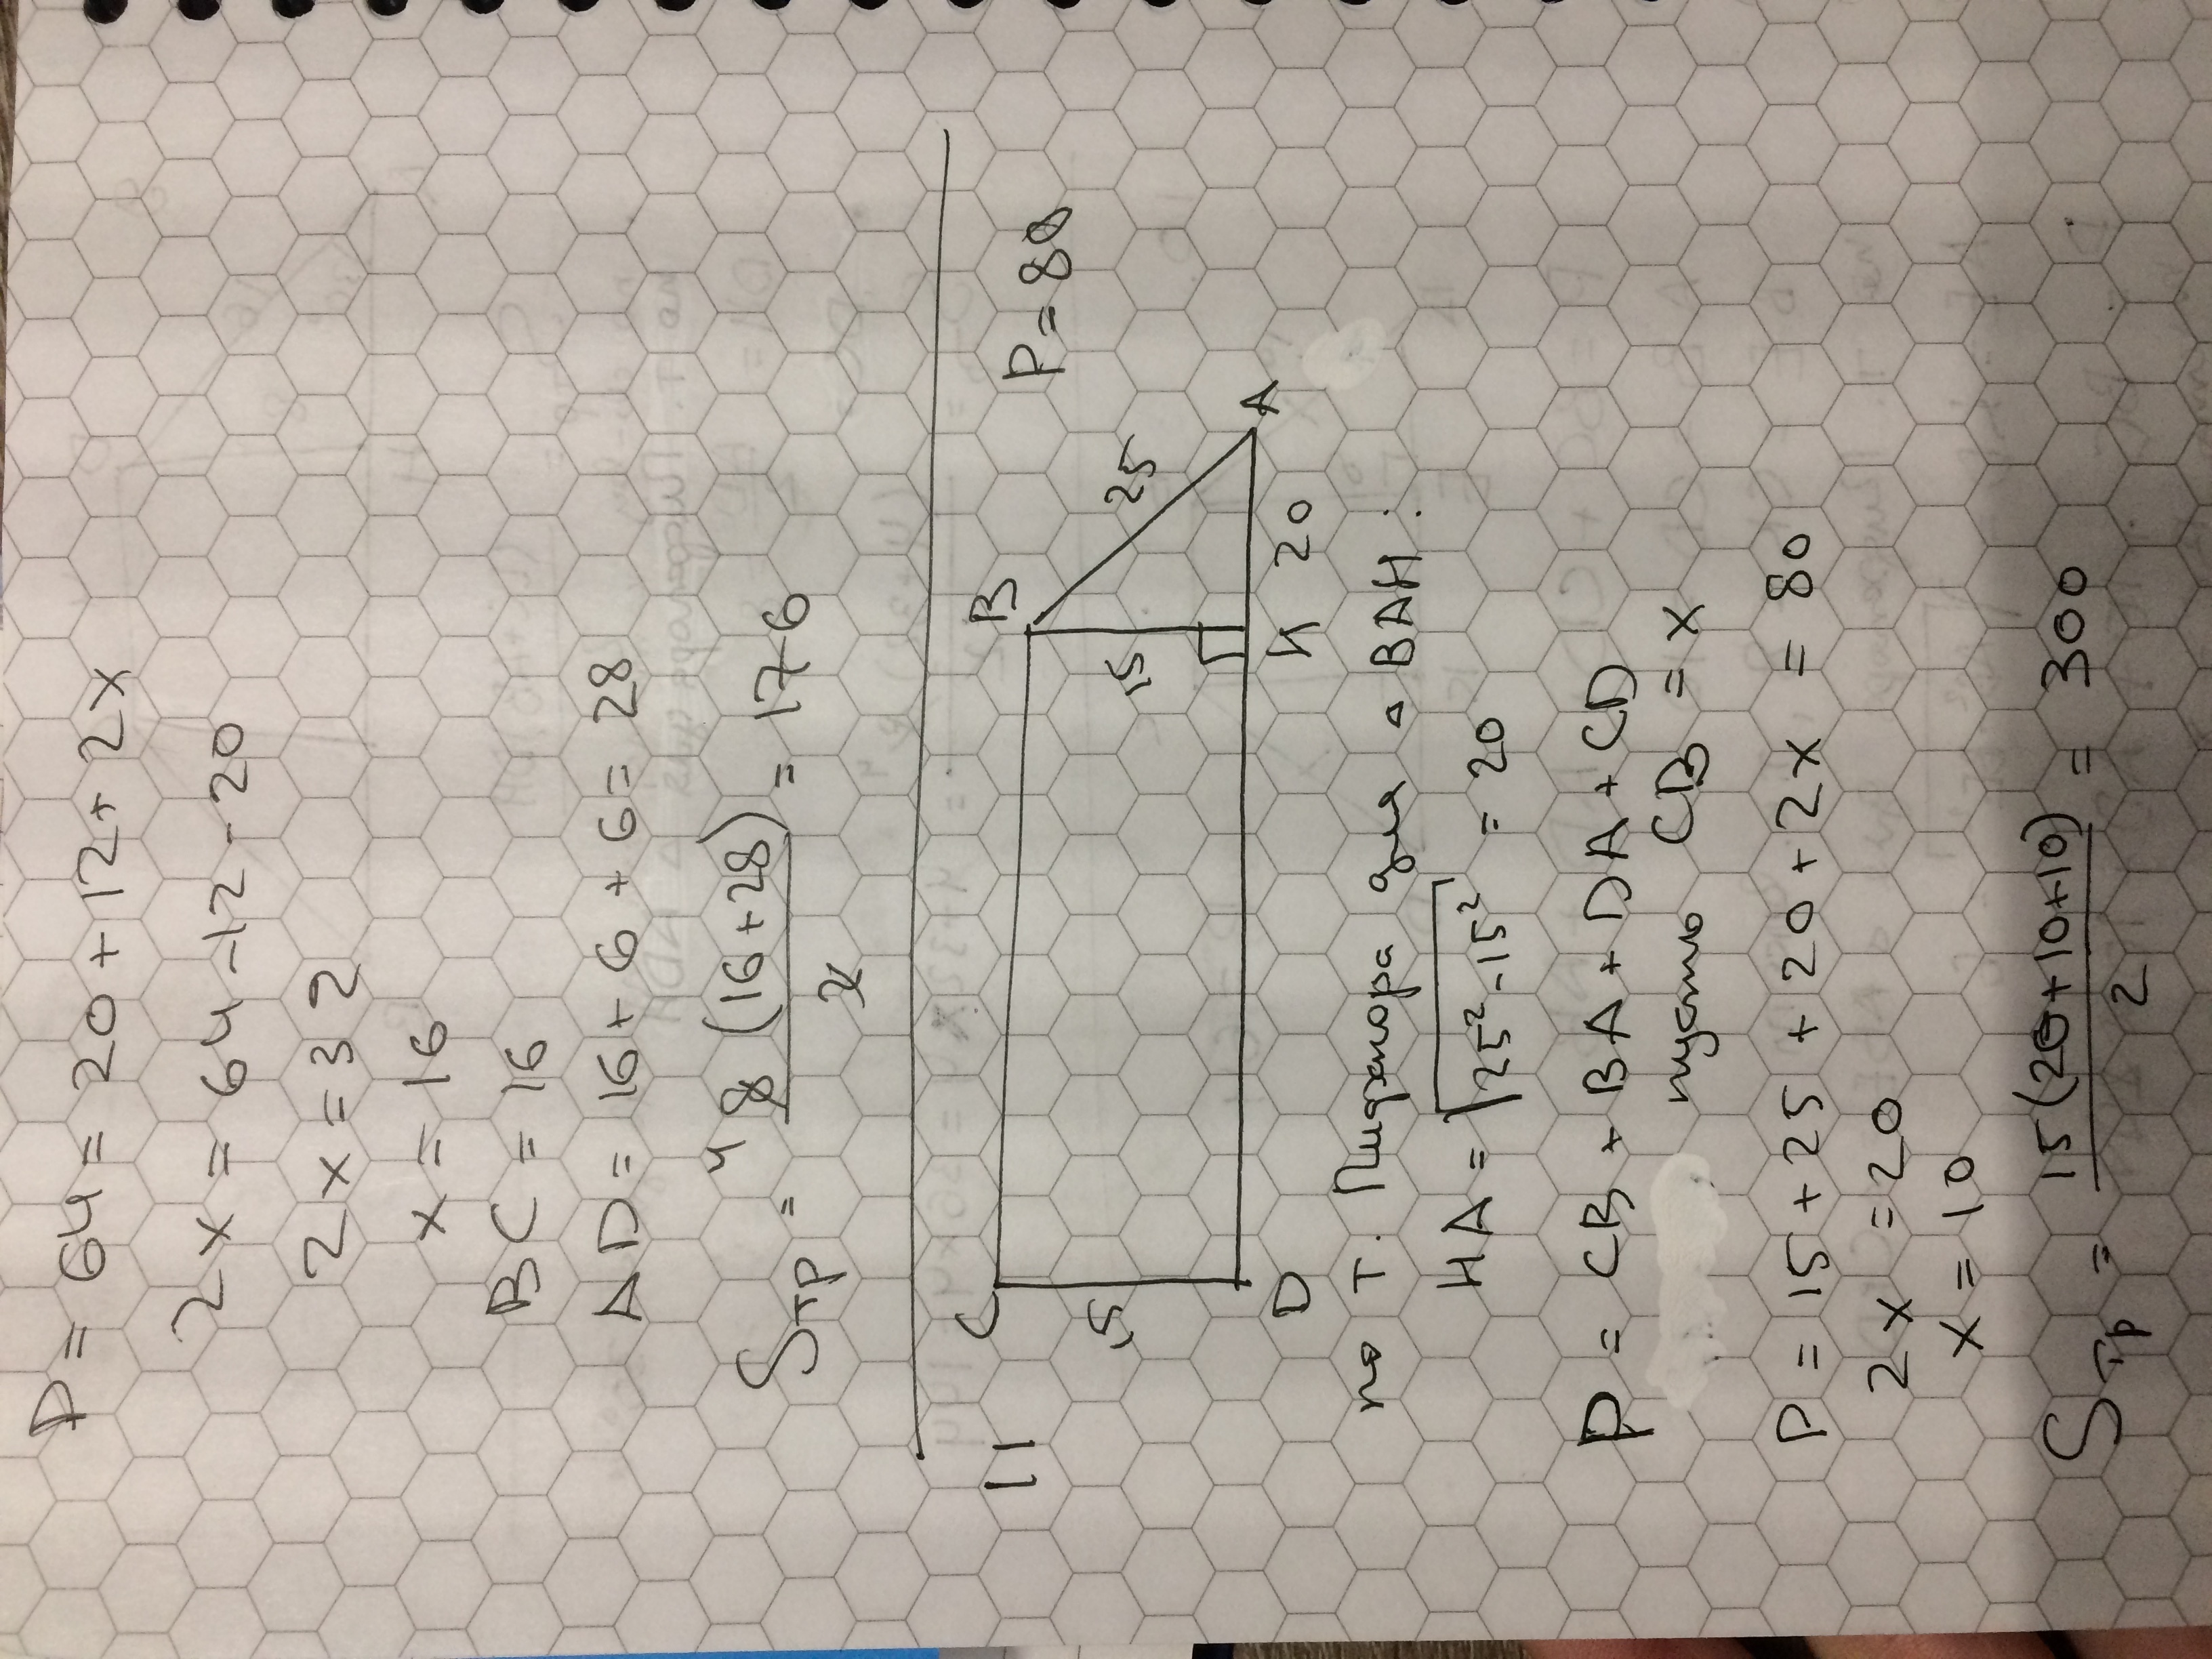 P = 64 = 20 + 12 + 2x
2x = 64 - 12 - 20
2x = 32
x = 16
BC = 16
AD = 16 + 6 + 6 = 28
Sтр = 4 8 (16 + 28) / 2 = 176
11
P = 80
C
B
15
15
25
D
H
20
A
по т. Пифагора для △ BAH:
HA = √25² - 15² = 20
P = CB + BA + DA + CD
пусть CB = x
P = 15 + 25 + 20 + 2x = 80
2x = 20
x = 10
Sтр = 15(20+10+10) / 2 = 300